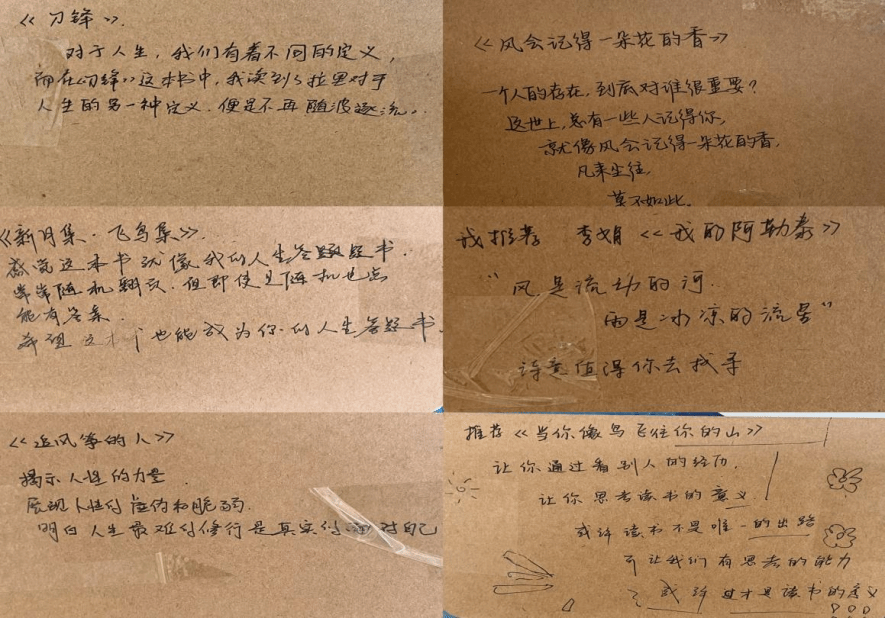 《刀锋》.
对于人生，我们有着不同的定义，
而在《刀锋》这本书中，我读到了拉里对于
人生的另一种定义.便是不再随波逐流.
《风会记得一朵花的香》
一个人的存在，到底对谁很重要？
这世上，总有一些人记得你，
就像风会记得一朵花的香，
凡来尘往，
莫不如此.
《新月集·飞鸟集》.
感觉这本书就像我的人生答疑题书.
常常随机翻页.但即使是随机也总
能有答案.
希望这本 也能成为你的人生答疑书.
我推荐 李娟《我的阿勒泰》
“风是流动的河.
雨是冰凉的流星”
诗意值得你去找寻
《追风筝的人》
揭示人性的力量
展现人性的 和脆弱.
明白人生最难的修行是真实的面对自己
推荐《当你像鸟飞往你的山》
让你通过看别人的经历，
让你思考读书的意义
或许读书不是唯一的出路
可让我们有思考的能力
或许这才是读书的意义